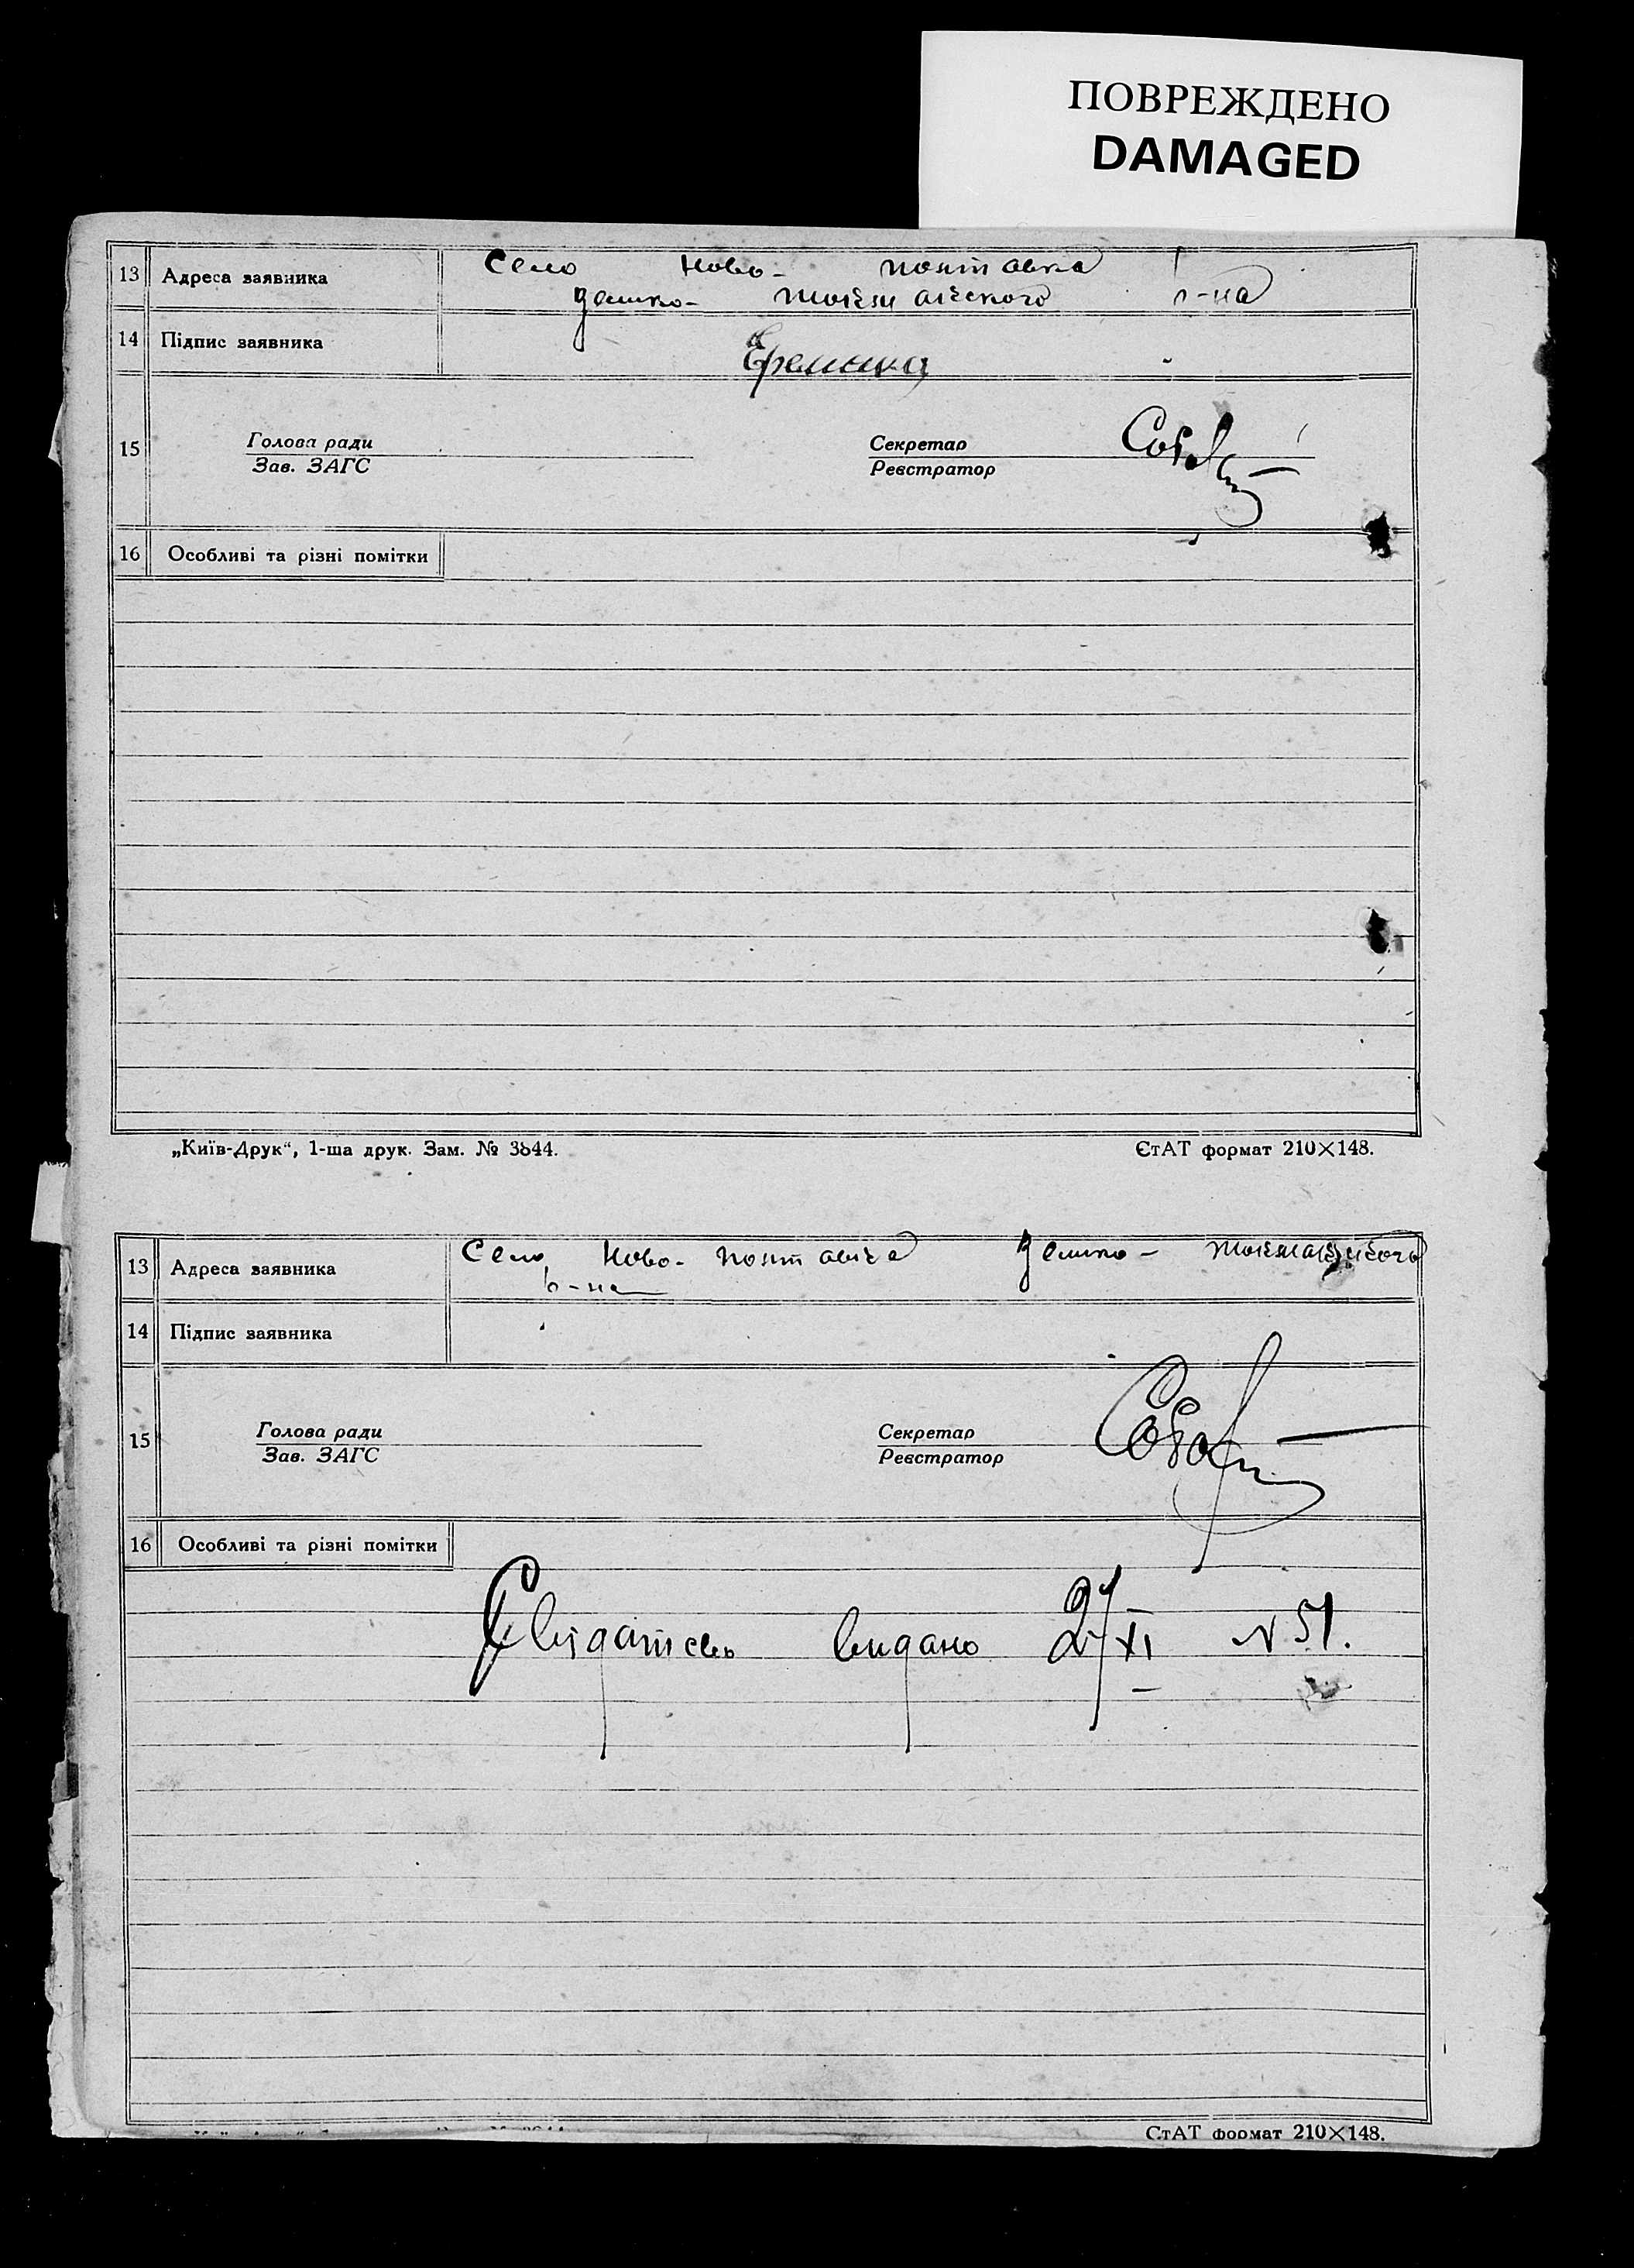 ПОВРЕЖДЕНО
DAMAGED
13 Адреса заявника Село Ново-Полтавка
р-на
14 Підпис заявника
15 Голова ради Секретар
Зав. ЗАГС Реєстратор
16 Особливі та різні помітки
„Київ-Друк“, 1-ша друк. Зам. № 3844.
ЄтАТ формат 210×148.
13 Адреса заявника Село Ново-Полтавка
р-на
14 Підпис заявника
15 Голова ради Секретар
Зав. ЗАГС Реєстратор
16 Особливі та різні помітки
видано 27/XI N 51.
СтАТ формат 210×148.